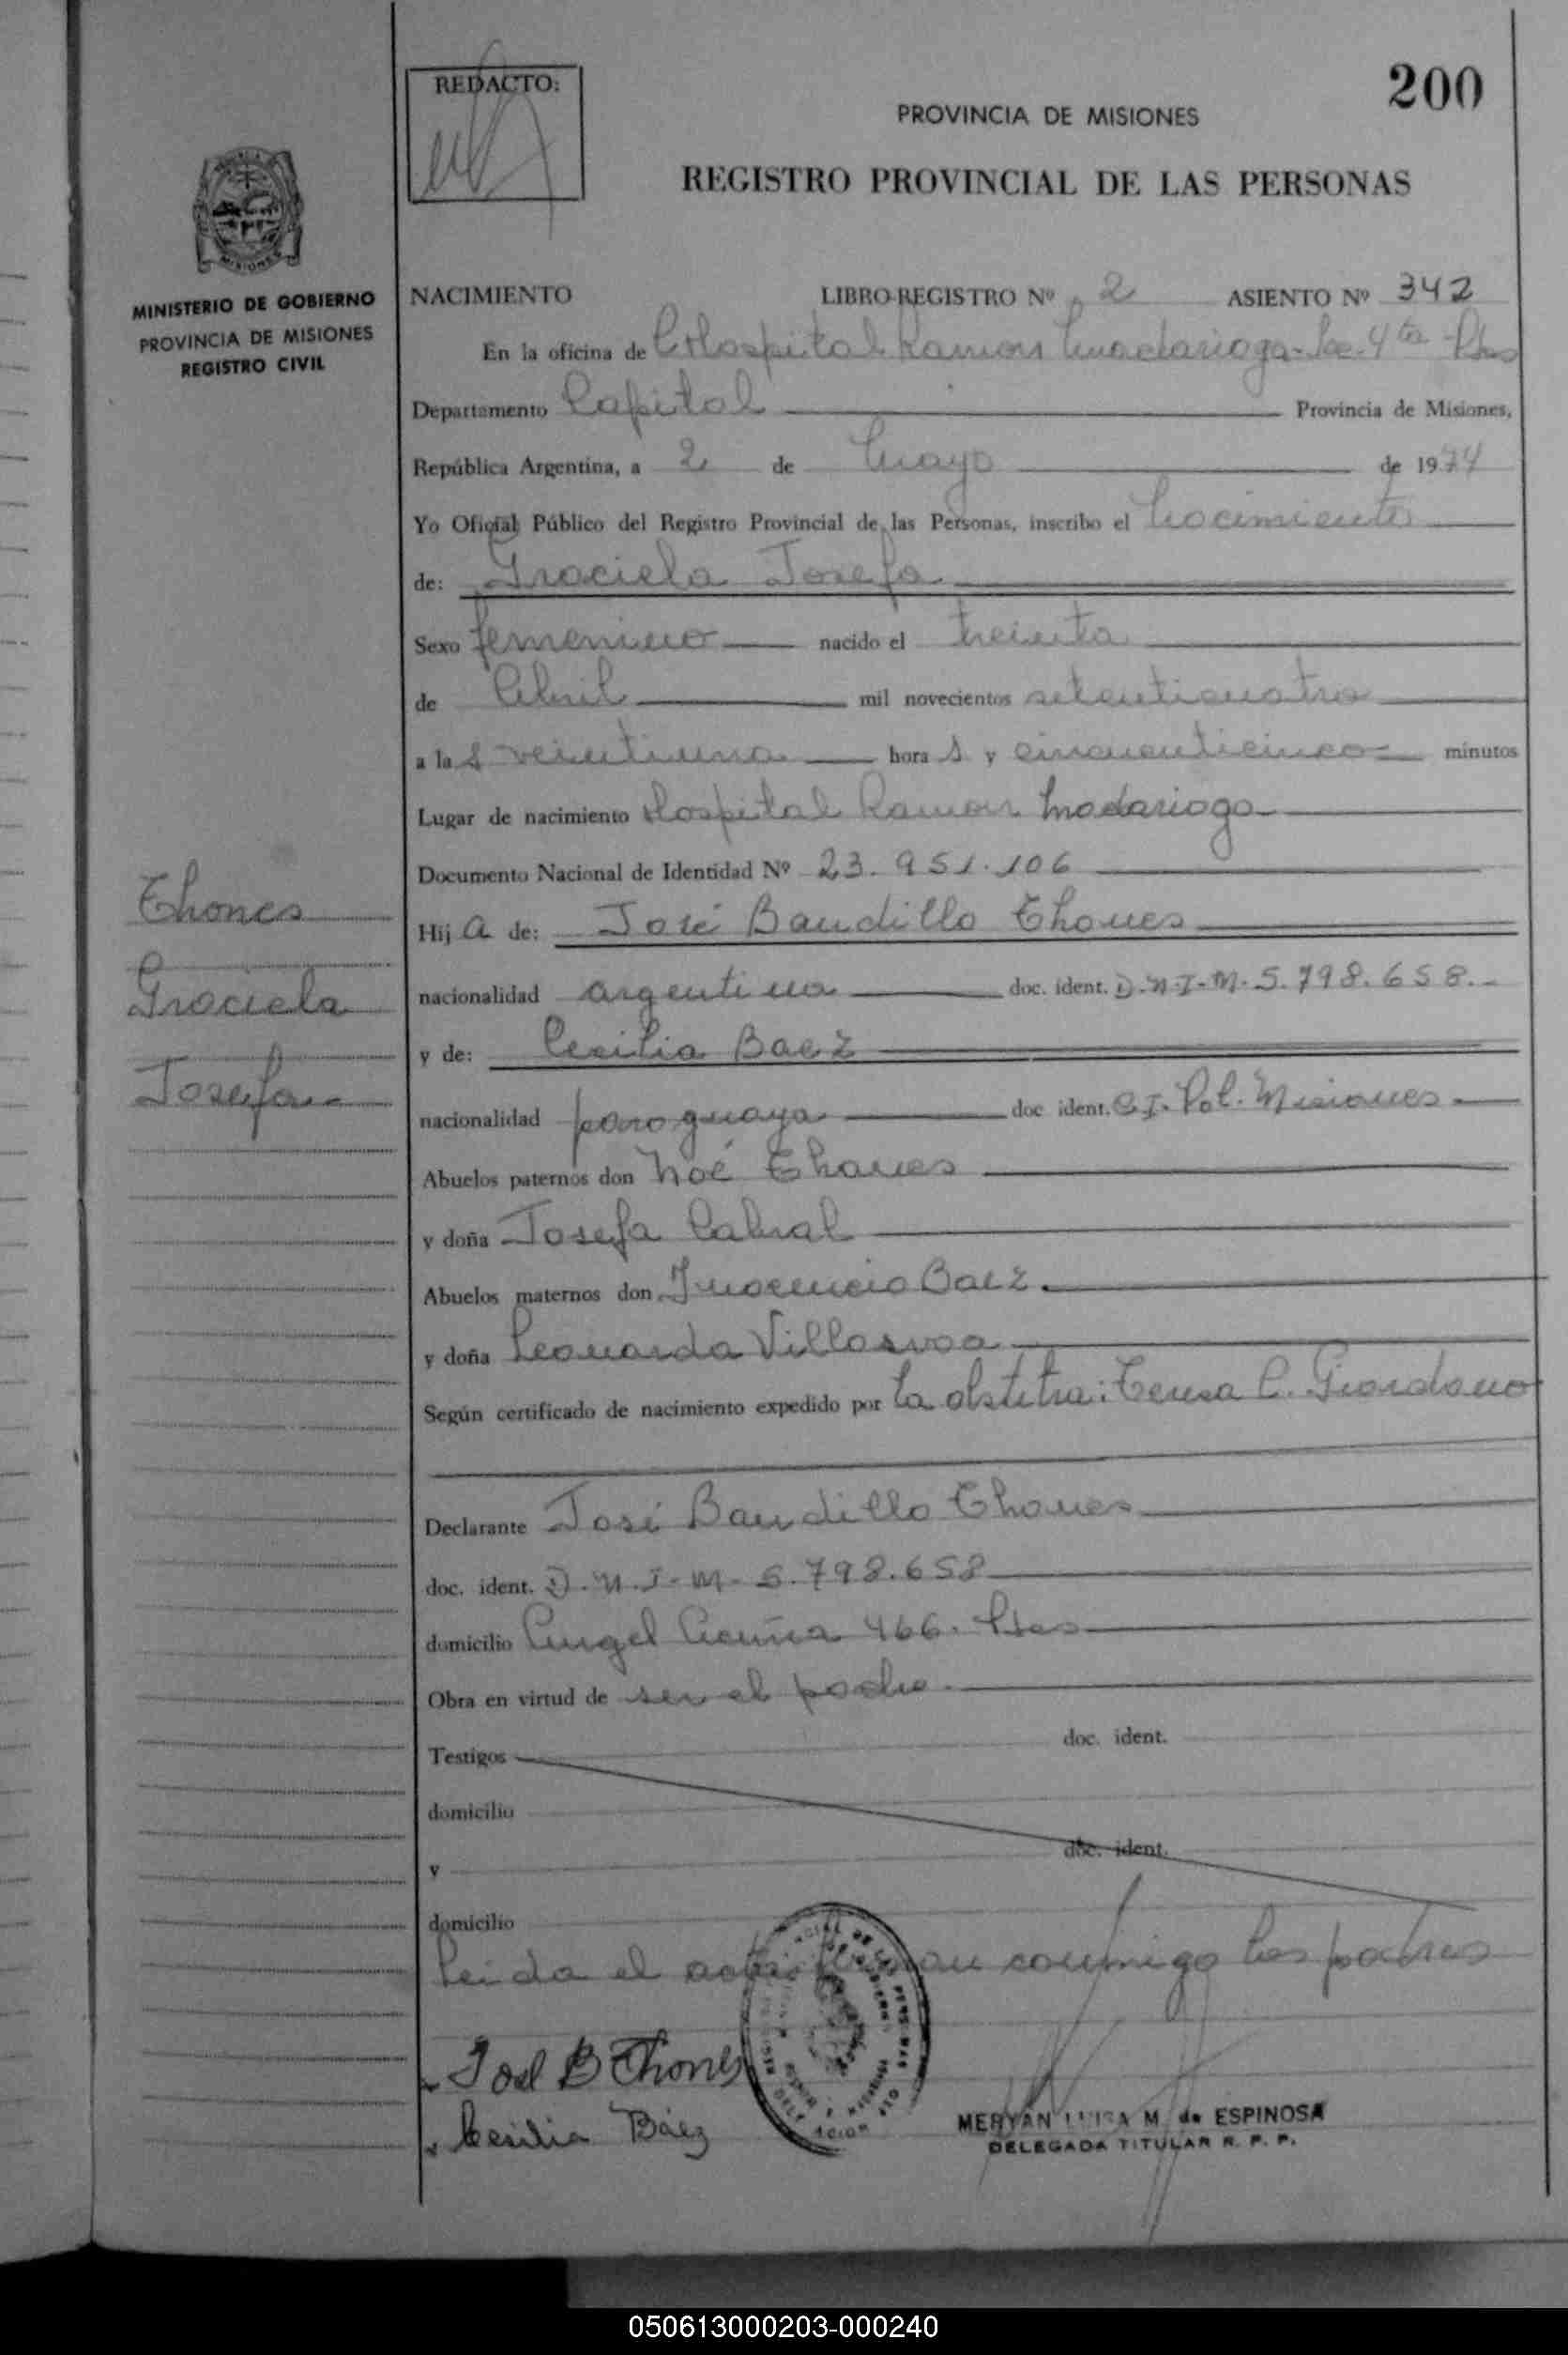 REDACTO:
200
PROVINCIA DE MISIONES
REGISTRO PROVINCIAL DE LAS PERSONAS
MINISTERIO DE GOBIERNO
PROVINCIA DE MISIONES
REGISTRO CIVIL
NACIMIENTO LIBRO-REGISTRO Nº 2 ASIENTO Nº 342
En la oficina de Hospital Ramon Madariaga - Sec. 4ta - Pdas
Departamento Capital Provincia de Misiones,
República Argentina, a 2 de Mayo de 1974
Yo Oficial Público del Registro Provincial de las Personas, inscribo el Nacimiento
de: Graciela Josefa
Sexo femenino nacido el treinta
de Abril mil novecientos setenticuatro
a las veintiuna horas y cincuenticinco minutos
Lugar de nacimiento Hospital Ramon Madariaga
Documento Nacional de Identidad Nº 23.951.106
Thones
Graciela
Josefa
Hija de: José Baudillo Thones
nacionalidad argentina doc. ident. D.N.I-M-5.798.658.-
y de: Cecilia Baez
nacionalidad paraguaya doc ident. C.I. Pol. Misiones
Abuelos paternos don Noé Thones
y doña Josefa Cabral
Abuelos maternos don Inocencio Baez
y doña Leonarda Villasvoa
Según certificado de nacimiento expedido por la obstetra: Teresa C. Giordano
Declarante José Baudillo Thones
doc. ident. D.N.I-M-5.798.658
domicilio Angel Acuña 466. Pdas
Obra en virtud de ser el padre
Testigos doc. ident.
domicilio
y doc. ident.
domicilio
Leida el acta firman conmigo los padres
José B Thones
Cesilia Báez
MERYAN LUISA M. de ESPINOSA
DELEGADA TITULAR R. P. P.
050613000203-000240